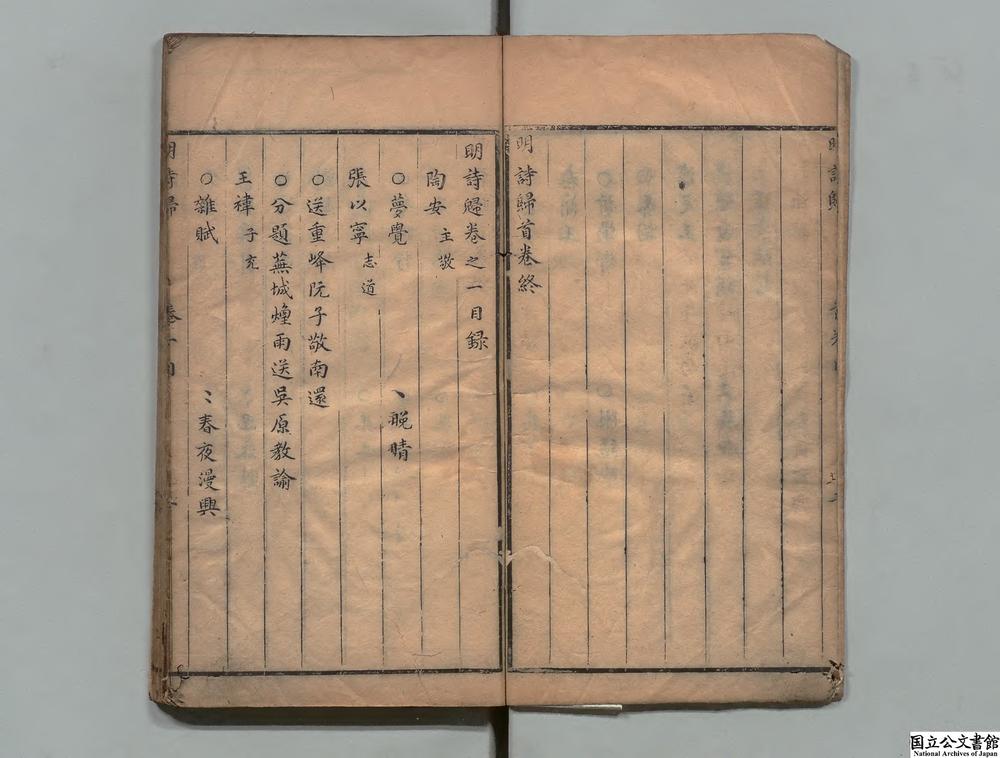 明詩歸首卷終
明詩歸卷之一目録
陶安 主敬
○夢覺 丶晚晴
張以寧 志道
○送重峰阮子敬南還
○分題蕪城煙雨送吳原教諭
王褘 子充
○雜賦 〻春夜漫興
明詩歸
国立公文書館
National Archives of Japan